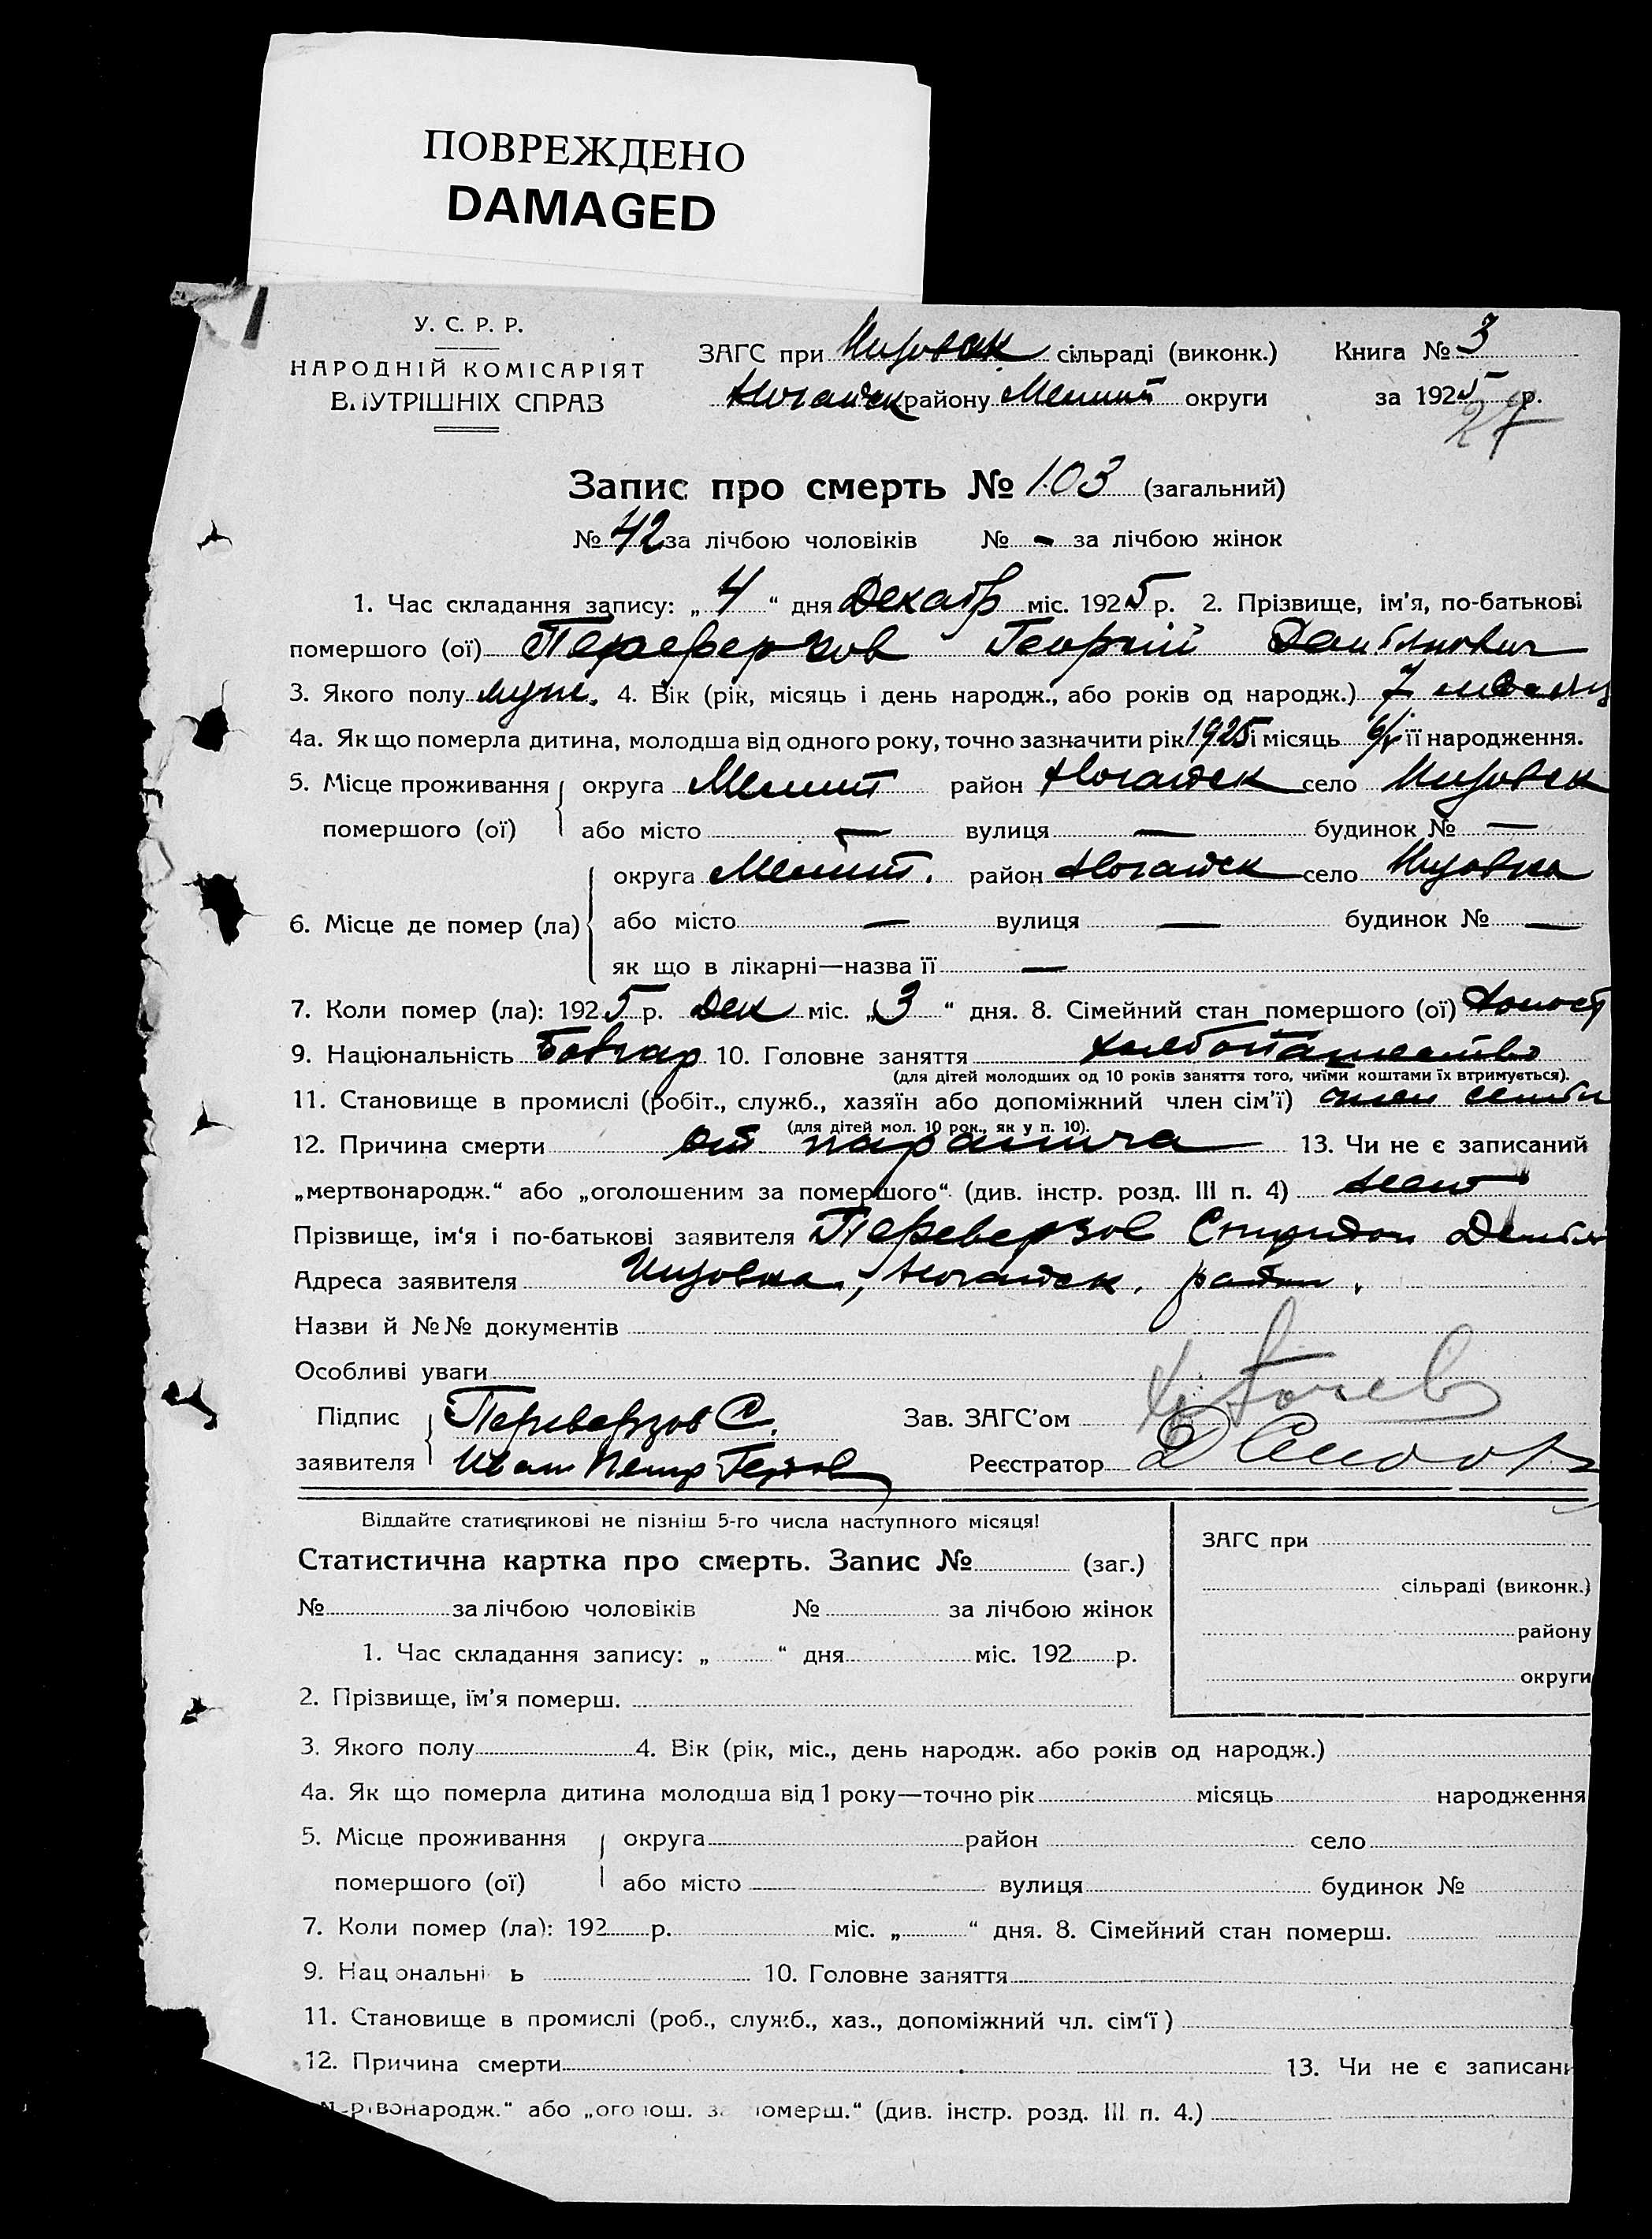 ПОВРЕЖДЕНО
DAMAGED
У. С. Р. Р.
НАРОДНІЙ КОМІСАРІЯТ
ВНУТРІШНІХ СПРАВ
ЗАГС при сільраді (виконк.) Книга № 3
Ногайск району Мелит округи за 1925 р.
27
Запис про смерть № 103 (загальний)
№ 42 за лічбою чоловіків № - за лічбою жінок
1. Час складання запису: „ 4 “ дня Декабр міс. 1925 р. 2. Прізвище, ім'я, по-батькові
помершого (ої) Георгій
3. Якого полу муж. 4. Вік (рік, місяць і день народж., або років од народж.) 7
4а. Як що померла дитина, молодша від одного року, точно зазначити рік 1925 і місяць її народження.
5. Місце проживання округа Мелит район Ногайск село
помершого (ої) або місто — вулиця — будинок № —
округа Мелит. район Ногайск село
6. Місце де помер (ла) або місто — вулиця — будинок № —
як що в лікарні—назва її —
7. Коли помер (ла): 1925 р. Дек міс. „ 3 “ дня. 8. Сімейний стан помершого (ої) Холост
9. Національність Болгар 10. Головне заняття хлебопашество
(для дітей молодших од 10 років заняття того, чиїми коштами їх втримується).
11. Становище в промислі (робіт., служб., хазяїн або допоміжний член сім'ї) член семьи
(для дітей мол. 10 рок., як у п. 10).
12. Причина смерти от паралича 13. Чи не є записаний
„мертвонародж.“ або „оголошеним за помершого“ (див. інстр. розд. III п. 4) нет
Прізвище, ім'я і по-батькові заявителя Переверзов Спиридон
Адреса заявителя Ногайск. район.
Назви й №№ документів
Особливі уваги
Підпис Переверзов С. Зав. ЗАГС'ом
заявителя Иван Петр Реєстратор
Віддайте статистикові не пізніш 5-го числа наступного місяця!
Статистична картка про смерть. Запис № (заг.)
ЗАГС при
сільраді (виконк.)
№ за лічбою чоловіків № за лічбою жінок
району
1. Час складання запису: „ “ дня міс. 192 р.
округи
2. Прізвище, їм'я помер​ш.
3. Якого полу 4. Вік (рік, міс., день народж. або років од народж.)
4а. Як що померла дитина молодша від 1 року—точно рік місяць народження
5. Місце проживання округа район село
помершого (ої) або місто вулиця будинок №
7. Коли помер (ла): 192 р. міс. „ “ дня. 8. Сімейний стан помер​ш.
9. Національні ь 10. Головне заняття
11. Становище в промислі (роб., служб., хаз., допоміжний чл. сім'ї)
12. Причина смерти 13. Чи не є записани
рівонародж.“ або „оголош. за померш.“ (див. інстр. розд. III п. 4.)